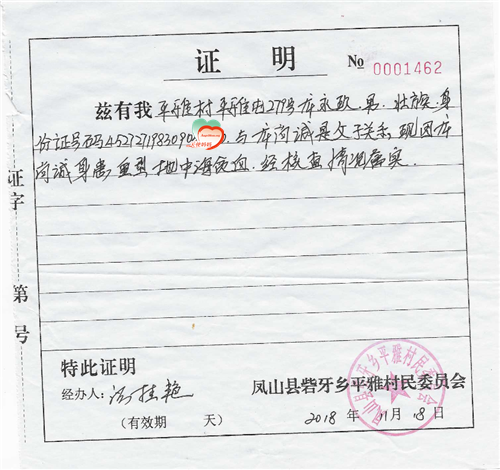 证 明
№ 0001462
兹有我平雅村平雅屯279号库永政,男,壮族,身
份证号码4527271983090 与库尚诚是父子关系,现因库
尚诚身患重型地中海贫血,经核查情况属实.
证字第 号
特此证明
经办人: 桂艳
凤山县砦牙乡平雅村民委员会
(有效期 天)
2018 年 11月 18日
凤山县砦牙乡平雅村民委员会